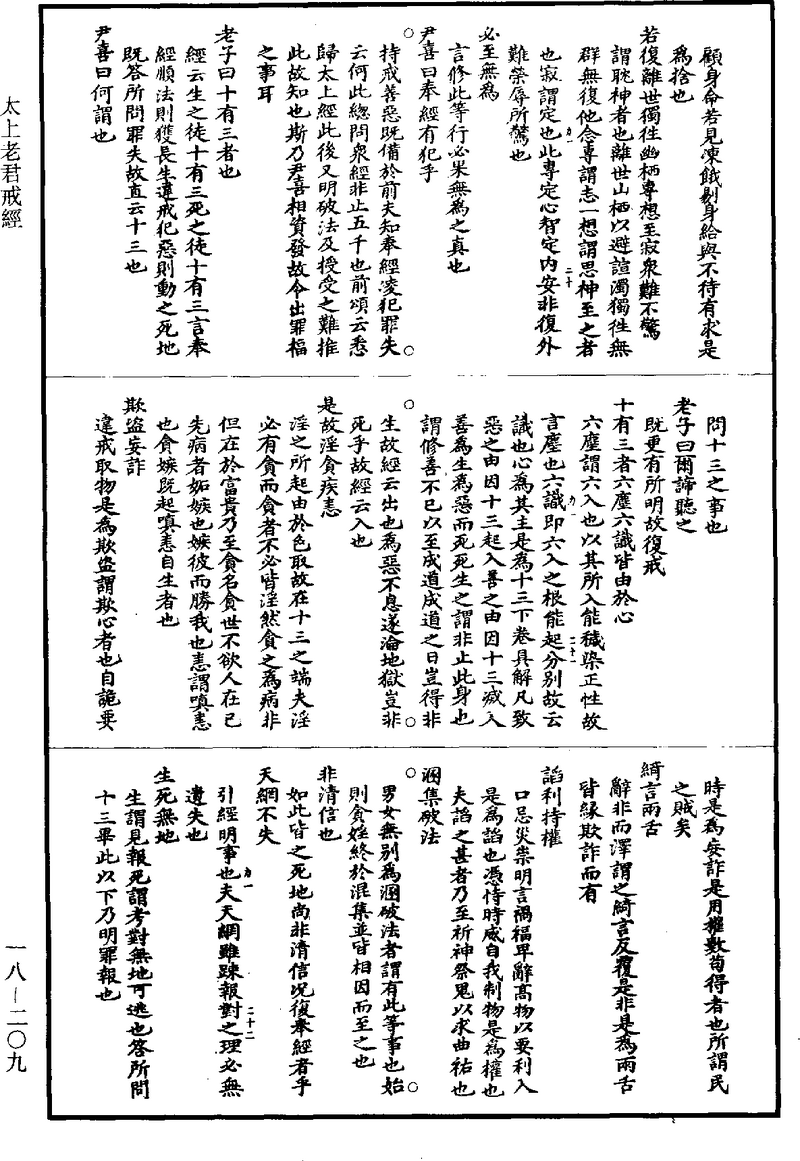 顧身命若見凍餓剔身給與不待有求是
爲捨也
若復離世獨往幽栖專想至寂衆難不驚
謂耽神者也離世山栖以避諠濁獨往無
群無復他念專謂志一想謂思神至之者
力一
二十
也寂謂定也此專定心智定内安非復外
難榮辱所驚也
必至無爲
言修此等行必果無爲之真也
尹喜曰奉經有犯乎
持戒善惡既備於前夫知奉經凌犯罪失
云何此總問衆經非止五千也前頌云悉
歸太上經此後又明破法及授受之難推
此故知也斯乃尹喜相資發故令出罪福
之事耳
老子曰十有三者也
經云生之徒十有三死之徒十有三言奉
經順法則獲長生違戒犯惡則動之死地
既答所問罪失故直云十三也
尹喜曰何謂也
問十三之事也
老子曰爾諦聽之
既更有所明故復戒
十有三者六塵六識皆由於心
六塵謂六入也以其所入能穢染正性故
力一
二十一
言塵也六識即六入之根能起分別故云
識也心爲其主是爲十三下卷具解凡致
惡之由因十三起入善之由因十三滅入
善爲生爲惡而死死生之謂非止此身也
謂修善不已以至成道成道之日豈得非
生故經云出也爲惡不息遂淪地獄豈非
死乎故經云入也
是故淫貪疾恚
淫之所起由於色取故在十三之端夫淫
必有貪而貪者不必皆淫然貪之爲病非
但在於富貴乃至貪名貪世不欲人在己
先病者妬嫉也嫉彼而勝我也恚謂嗔恚
也貪嫉既起嗔恚自生者也
欺盜妄詐
違戒取物是爲欺盜謂欺心者也自詭要
時是爲妄詐是用權數苟得者也所謂民
之賊矣
綺言兩舌
辭非而澤謂之綺言反覆是非是爲兩舌
皆緣欺詐而有
諂利持權
口忌災祟明言禍福卑辭高物以要利入
是爲諂也憑恃時威自我制物是爲權也
夫諂之甚者乃至祈神祭鬼以求曲祐也
溷集破法
男女無別爲溷破法者謂有此等事也始
則貪婬終於混集並皆相因而至之也
非清信也
如此皆之死地尚非清信况復奉經者乎
天網不失
引經明事也夫天網雖踈報對之理必無
力一
二十二
遺失也
生死無地
生謂見報死謂考對無地可逃也答所問
十三畢此以下乃明罪報也
太上老君戒經
一八—二〇九